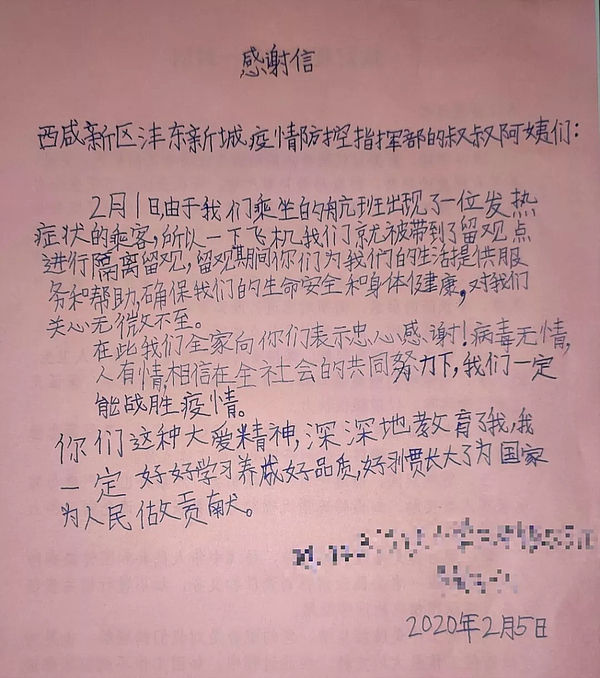 感谢信
西咸新区沣东新城疫情防控指挥部的叔叔阿姨们:
2月1日,由于我们乘坐的航班出现了一位发热
症状的乘客,所以一下飞机,我们就被带到了留观点
进行隔离留观,留观期间你们为我们的生活提供服
务和帮助,确保我们的生命安全和身体健康,对我们
关心无微不至。
在此我们全家向你们表示忠心感谢!病毒无情,
人有情,相信在全社会的共同努力下,我们一定
能战胜疫情。
你们这种大爱精神,深深地教育了我,我
一定好好学习养成好品质,好习惯长大了为国家
为人民做贡献。
2020年2月5日